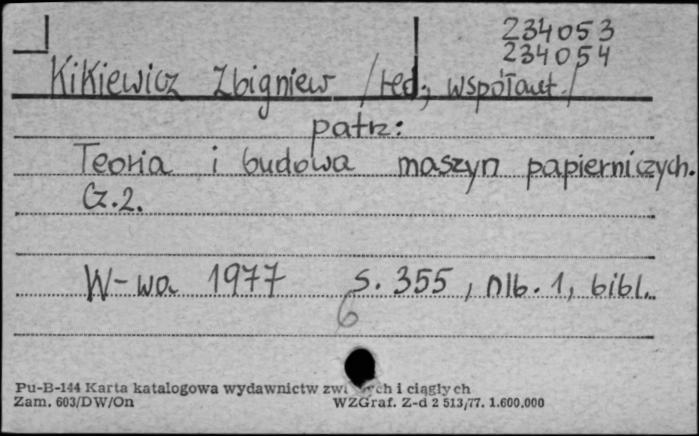 234053
234054
Kikiewicz Zbigniew /red., współaut./
patrz:
Teoria i budowa maszyn papierniczych.
Cz.2.
W-wa 1977 s. 355, nlb. 1, bibl.
6
Pu-B-144 Karta katalogowa wydawnictw i ciągłych
Zam. 603/DW/On WZGraf. Z-d 2 513/77. 1.600.000